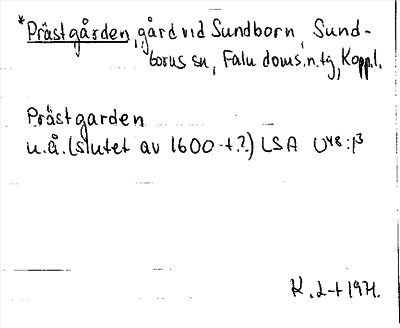 *Prästgården, gård vid Sundborn, Sund-
borns sn, Falu doms.n.tg, Koppl.
Prästgarden
u.å. (slutet av 1600-t.?) LSA U48:1³
K. L-t 1971.